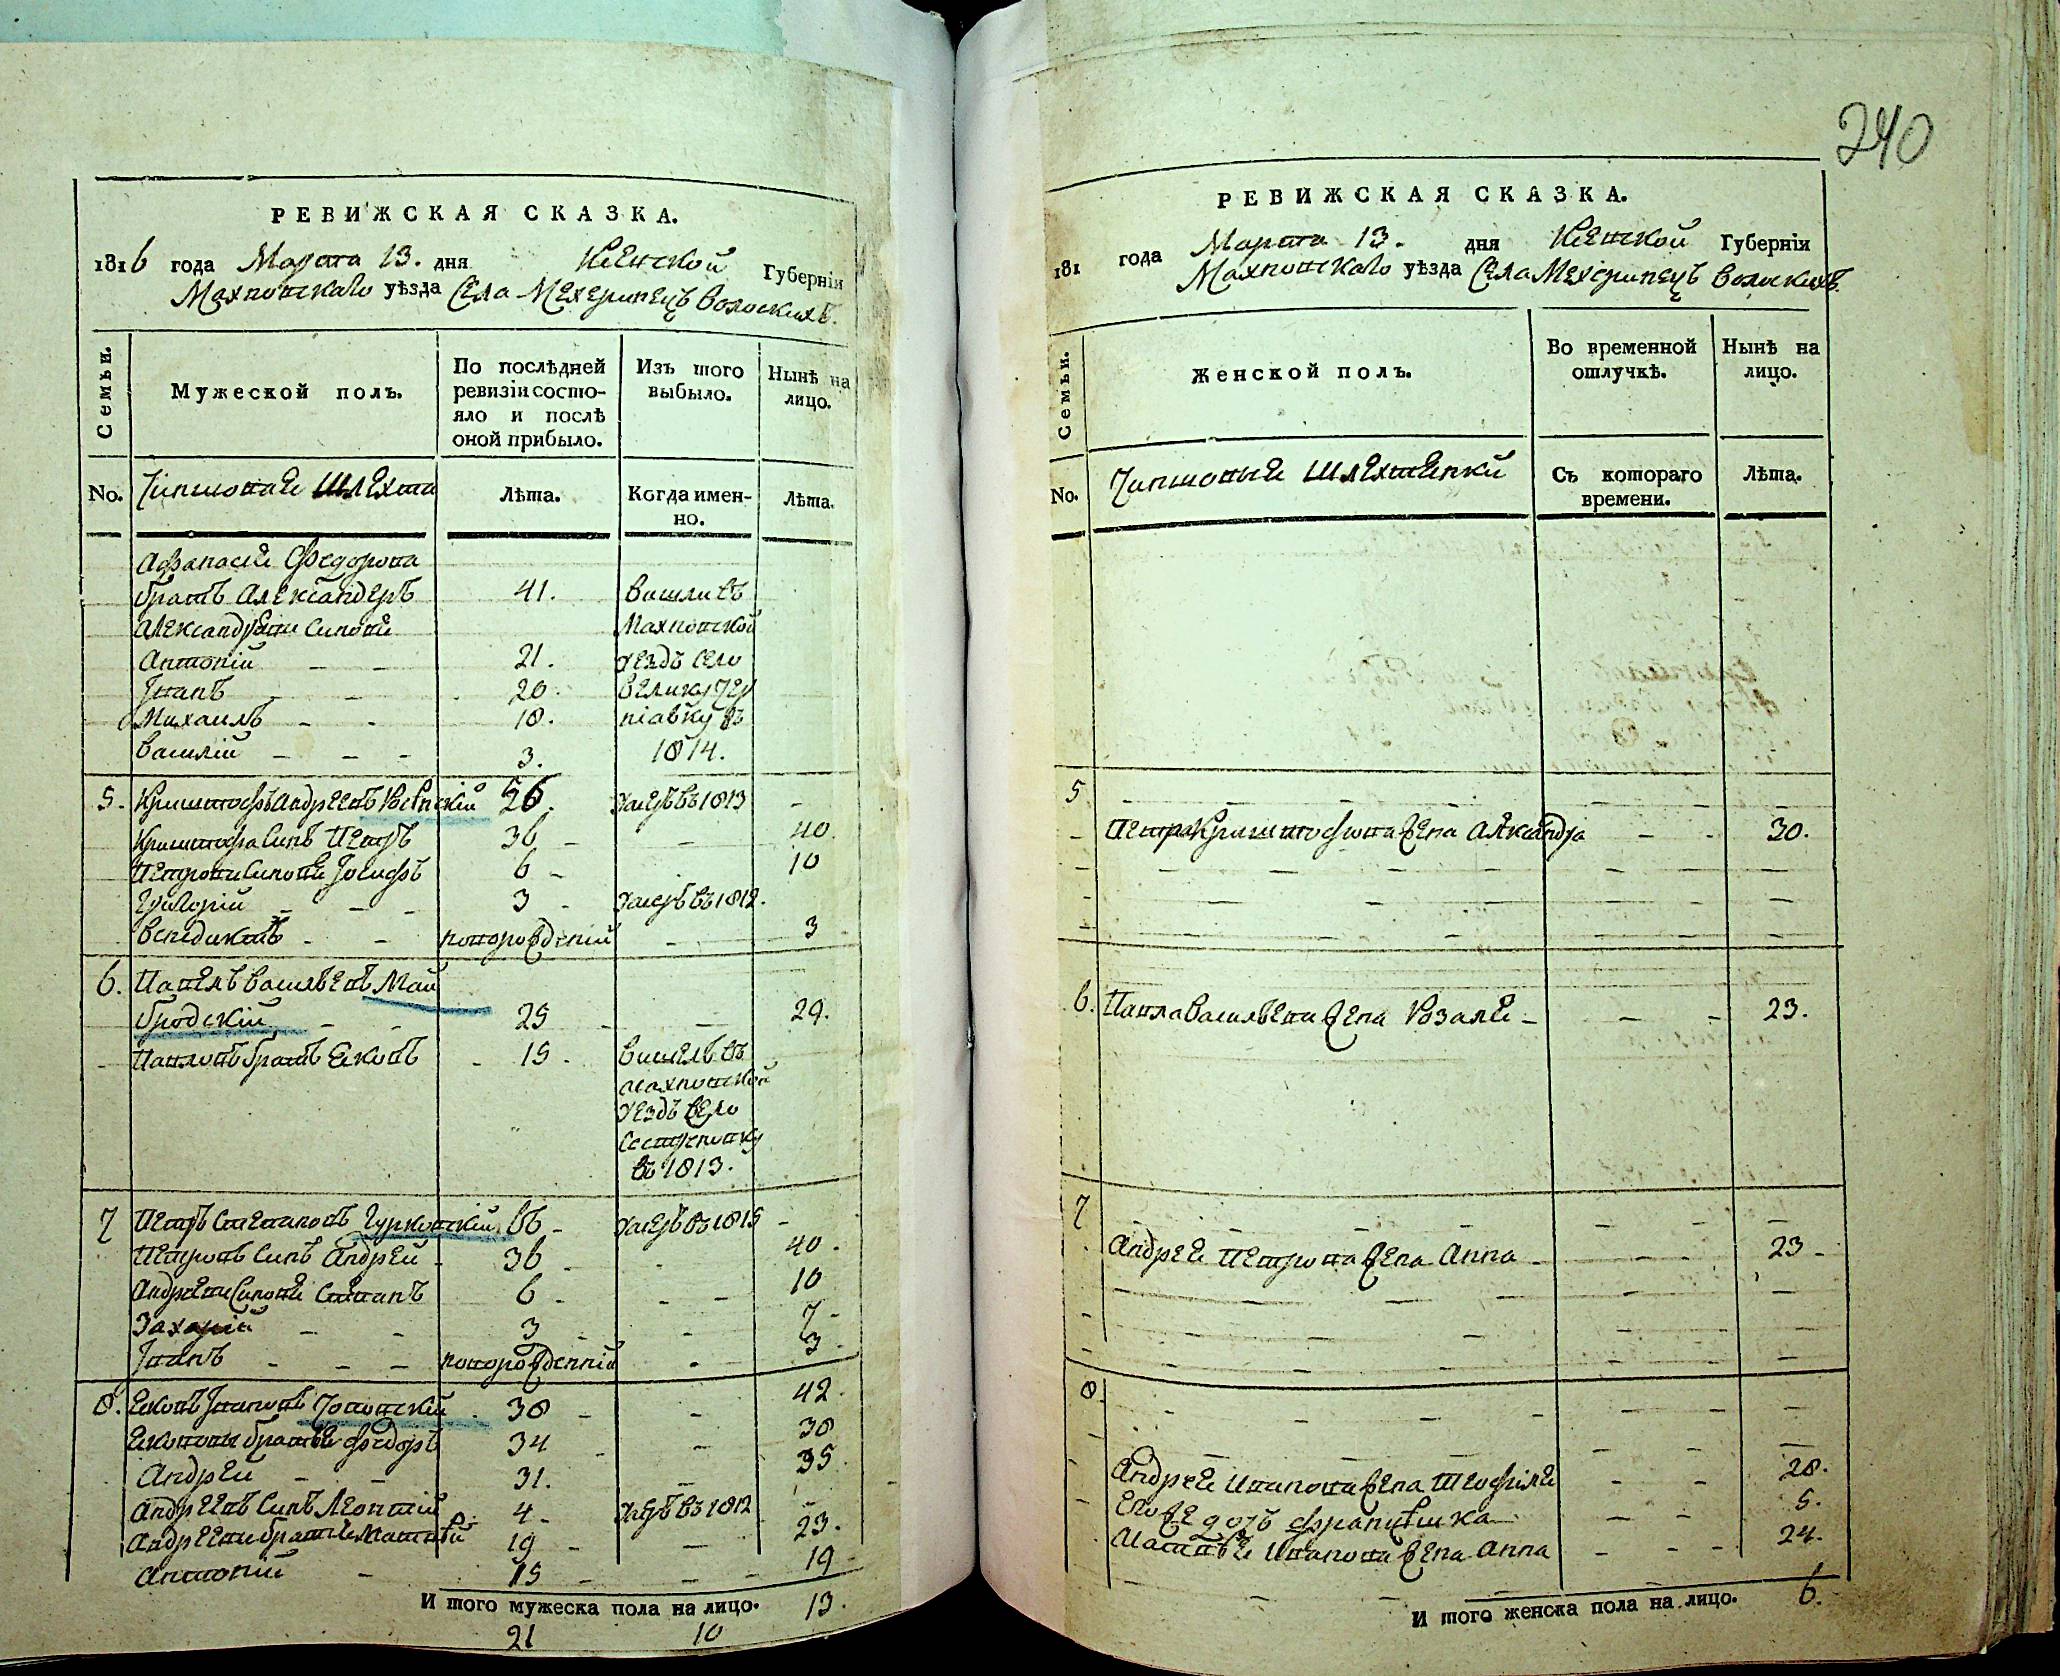 240
РЕВИЖСКАЯ СКАЗКА.
1816 года Марта 13. дня Кіевской Губерніи
Махновскаго уѣзда Села Мехеринец Волоскихъ.
Семьи.
Мужеской полъ.
По послѣдней ревизіи состо-
яло и послѣ
оной прибыло.
Изъ того
выбыло.
Нынѣ на
лицо.
No.
Чиншовые Шляхта
Лѣта.
Когда имен-
но.
Лѣта.
Афанасія Федорова
братъ Александеръ 41. вишли въ
Александра синови Махновской
Антоній 21. уездъ село
Іванъ 20. Велику Чер
Михаилъ 18. нявку въ
Василій 3. 1814.
5. Криштофъ Андреевъ 56. умеръ въ 1813
Криштофа синъ Петръ 36 40.
Петрови синове Іосифъ 6 10
Григорій 3 умеръ въ 1812.
Венедиктъ новорожденій 3
6. Павелъ Васильевъ Май
гродскій 25 29.
Павловъ братъ Яковъ 15. вишелъ въ
Махновской
уездъ село
Сестреновку
въ 1813.
7 Петръ Степановъ Гурковскій умеръ въ 1815
Петровъ синъ Андрей 36 40.
Андрееви синове Степанъ 6 10
Захарій 3 7
Іванъ новорожденній 3
8. Яковъ Івановъ 38 42.
Якововы братье Федоръ 34 38
Андрей 31. 35
Андреевъ синъ Леонтій 4. умеръ въ 1812
Андрееви братье Матвѣй 19 23.
Антоній 15 19
И того мужеска пола на лицо. 13.
21 10
РЕВИЖСКАЯ СКАЗКА.
181 года Марта 13. дня Кіевской Губерніи
Махновскаго уѣзда Села Мехеринец Волоскихъ.
Семьи.
Женской полъ.
Во временной
отлучкѣ.
Нынѣ на
лицо.
No.
Чиншовые Шляхтенки
Съ котораго
времени.
Лѣта.
5
Петра Криштофова жена Александра 30.
6. Павла Васильева жена Розалія 23.
7
Андрея Петрова жена Анна 23
8
Андрея Иванова жена Теофиля 28.
Его же дочь Францишка 5.
Матвѣя Иванова жена Анна 24.
И того женска пола на лицо. 6.